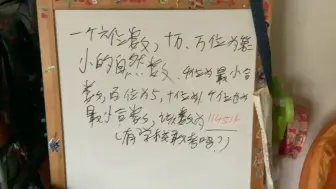 一个六位数,十万、万位为最
小的自然数、千位为最小合
数,百位为5,十位为1,个位为
最小合数,该数为114514
(有学校敢考吗?)